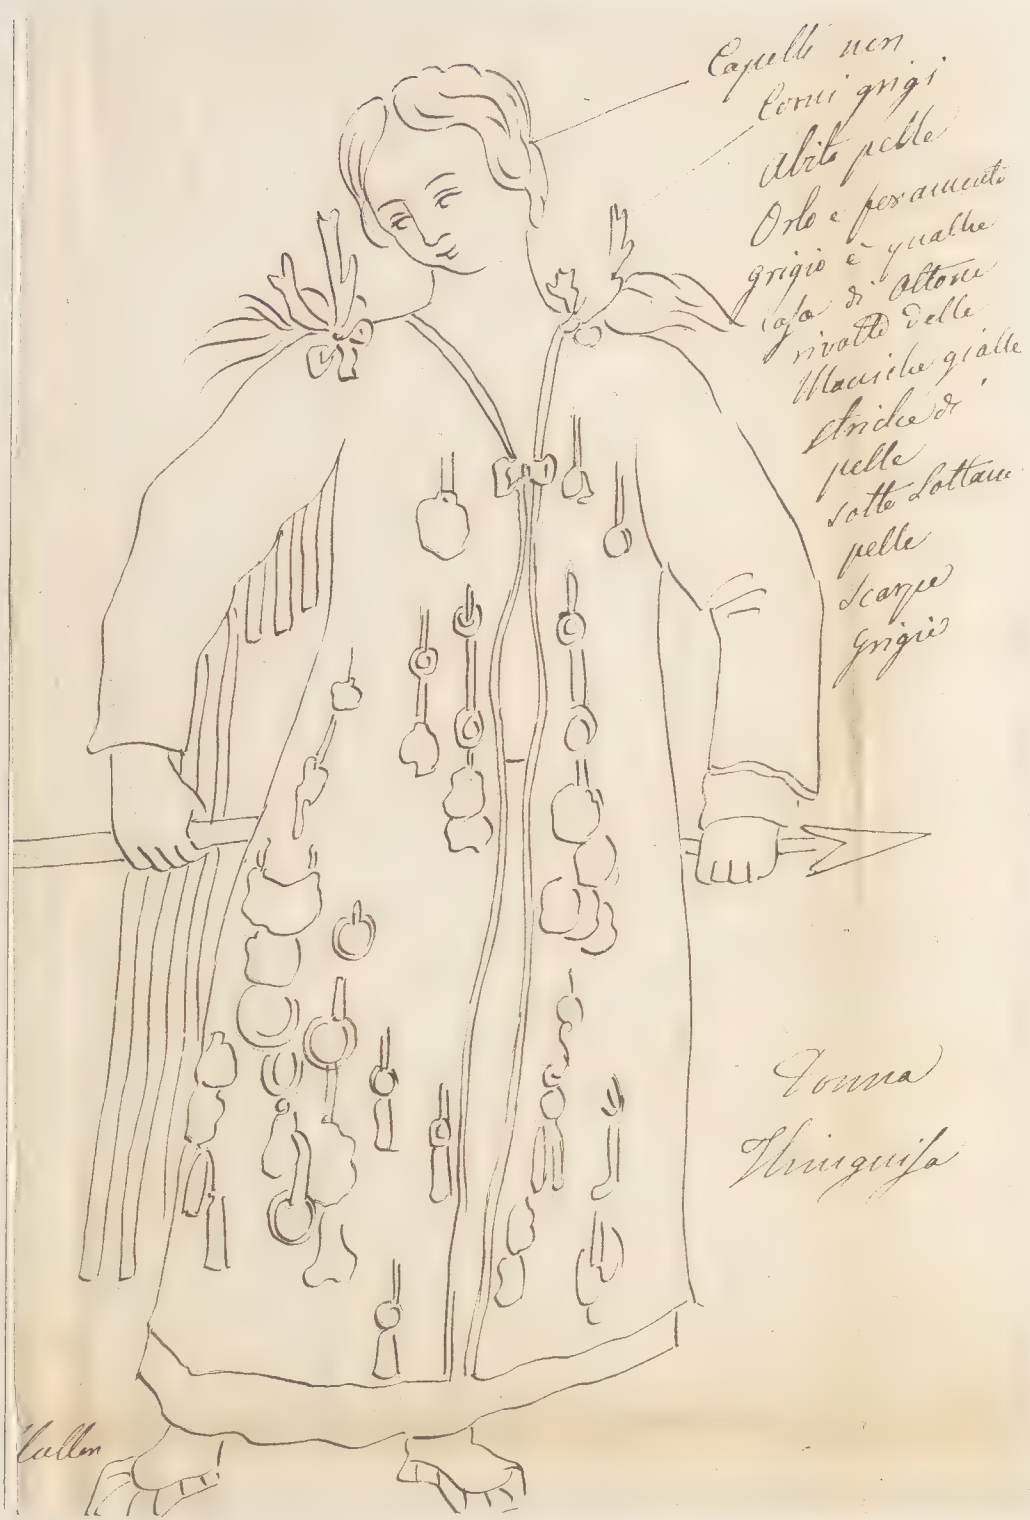 Capelli neri
Corni grigi
Abito pelle
Orlo e
grigio è qualche
cosa di Ottone
rivolte delle
Maniche gialle
striche di
pelle
sotto Sottane
pelle
Scarpe
grigie
Donna